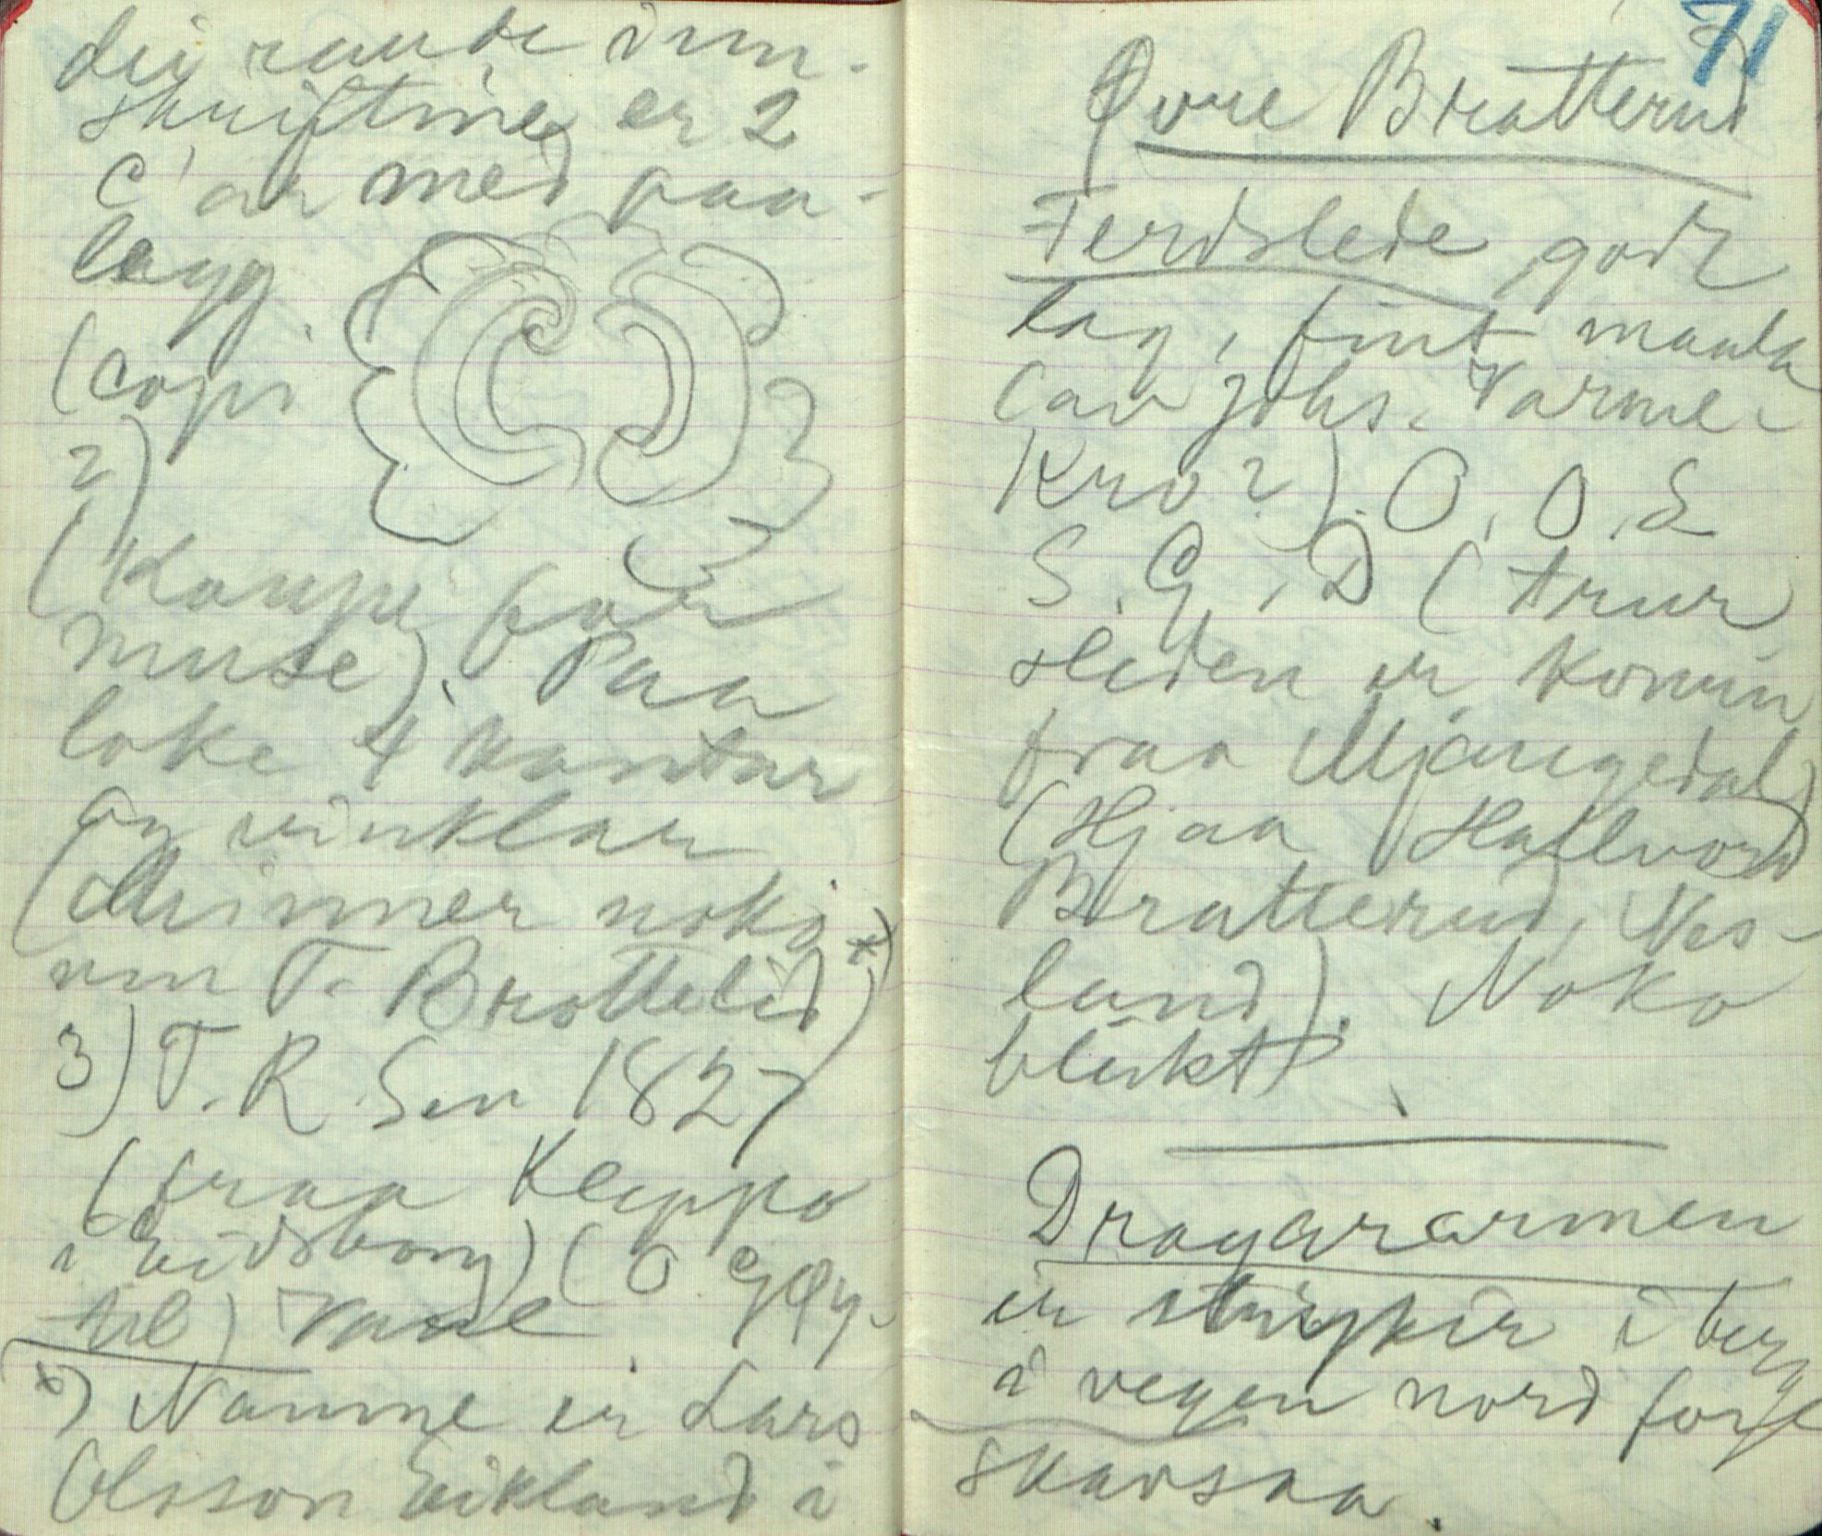 dei raude inn-
skriftine er 2
C'ar med paa-
legg.
(copi
2)
(Kaupe for
muse). Paa
loke 4 kantar
og vinklar
(Minner noko
um T. Brottelid *)
3) T. R. Sen 1827
(fraa Kleppo
i Eidsborg) (O. Gøy-
til)
*) Namne er Lars
Olsson Eikland i
71
Øvre Bratterud
Ferdslede, godt
lag, fint maala
(av Johs. Varme-
Kro?). O. O. S
S. G. D (trur
sleden er komin
fraa Mjaugedal)
(Hjaa Hallvord
Bratterud, Nes-
land). Noko
bleikt.
Dragararmen
er i berg
i vegen nord for
Skavsaa.